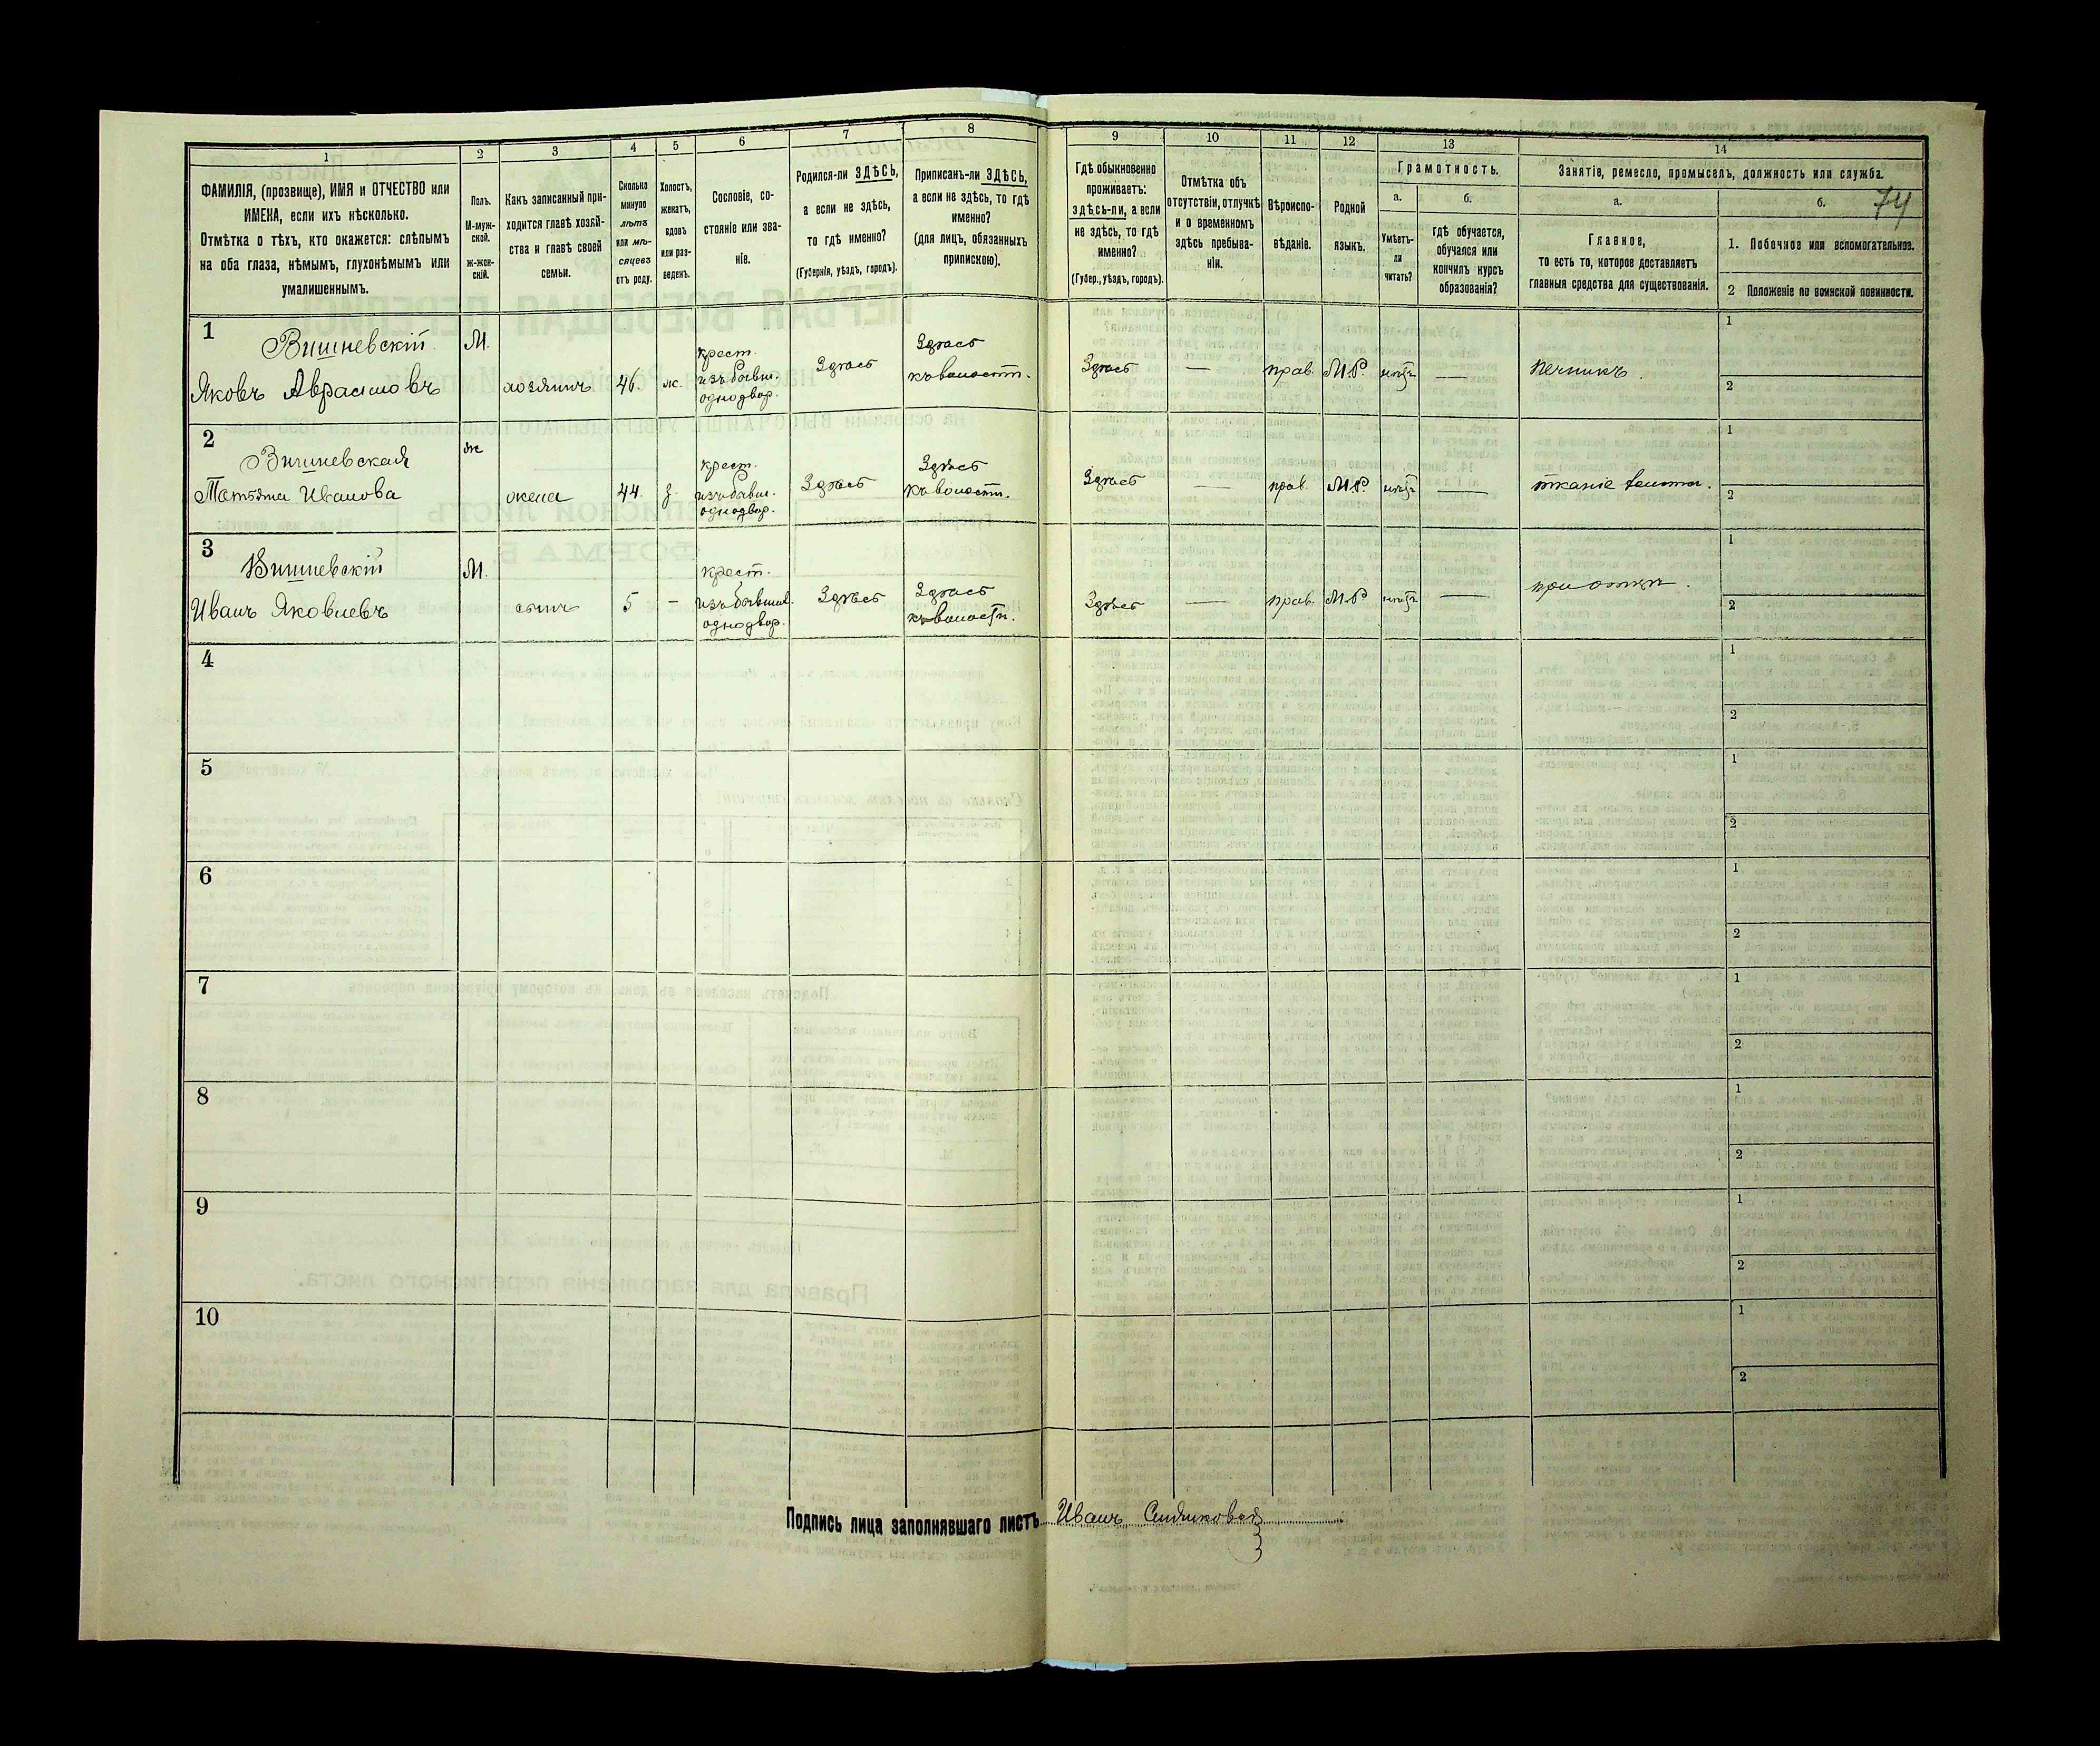 1
2
3
4
5
6
7
8
9
10
11
12
13
14
74
ФАМИЛІЯ, (прозвище), ИМЯ и ОТЧЕСТВО или
ИМЕНА, если ихъ нѣсколько.
Отмѣтка о тѣхъ, кто окажется: слѣпымъ
на оба глаза, нѣмымъ, глухонѣмымъ или
умалишеннымъ.
Полъ.
М-муж-
ской.
Ж-жен-
скій.
Какъ записанный при-
ходится главѣ хозяй-
ства и главѣ своей
семьи.
Сколько
минуло
лѣтъ
или мѣ-
сяцевъ
отъ роду.
Холостъ,
женатъ,
вдовъ
или раз-
веденъ.
Сословіе, со-
стояніе или зва-
ніе.
Родился-ли ЗДѢСЬ,
а если не здѣсь,
то гдѣ именно?
(Губернія, уѣздъ, городъ).
Приписанъ-ли ЗДѢСЬ,
а если не здѣсь, то гдѣ
именно?
(для лицъ, обязанныхъ
припискою).
Гдѣ обыкновенно
проживаетъ:
здѣсь-ли, а если
не здѣсь, то гдѣ
именно?
(Губер., уѣздъ, городъ).
Отмѣтка объ
отсутствіи, отлучкѣ
и о временномъ
здѣсь пребыва-
ніи.
Вѣроиспо-
вѣданіе.
Родной
языкъ.
Грамотность.
а.
Умѣетъ-
ли
читать?
б.
гдѣ обучается,
обучался или
кончилъ курсъ
образованія?
Занятіе, ремесло, промыселъ, должность или служба.
а.
Главное,
то есть то, которое доставляетъ
главныя средства для существованія.
б.
1. Побочное или вспомогательное.
2 Положеніе по воинской повинности.
1
Вишневскій
Яковъ Аврамовъ
М.
хозяинъ
46.
ж.
крест.
изъ бывш.
однодвор.
Здѣсь
Здѣсь
къ волости.
Здѣсь
—
прав.
М.Р.
нѣтъ
—
печникъ.
1
2
2
Вишневская
Татьяна Иванова
Ж
жена
44.
з.
крест.
изъ бывш.
однодвор.
Здѣсь
Здѣсь
къ волости.
Здѣсь
—
прав.
М.Р.
нѣтъ
—
тканіе
1
2
3
Вишневскій
Иванъ Яковлевъ
М.
сынъ
5
—
крест.
изъ бывшихъ
однодвор.
Здѣсь
Здѣсь
къ волости.
Здѣсь
—
прав.
М.Р
нѣтъ
—
при отцѣ.
1
2
4
1
2
5
1
2
6
1
2
7
1
2
8
1
2
9
1
2
10
1
2
Подпись лица заполнявшаго листъ Иванъ